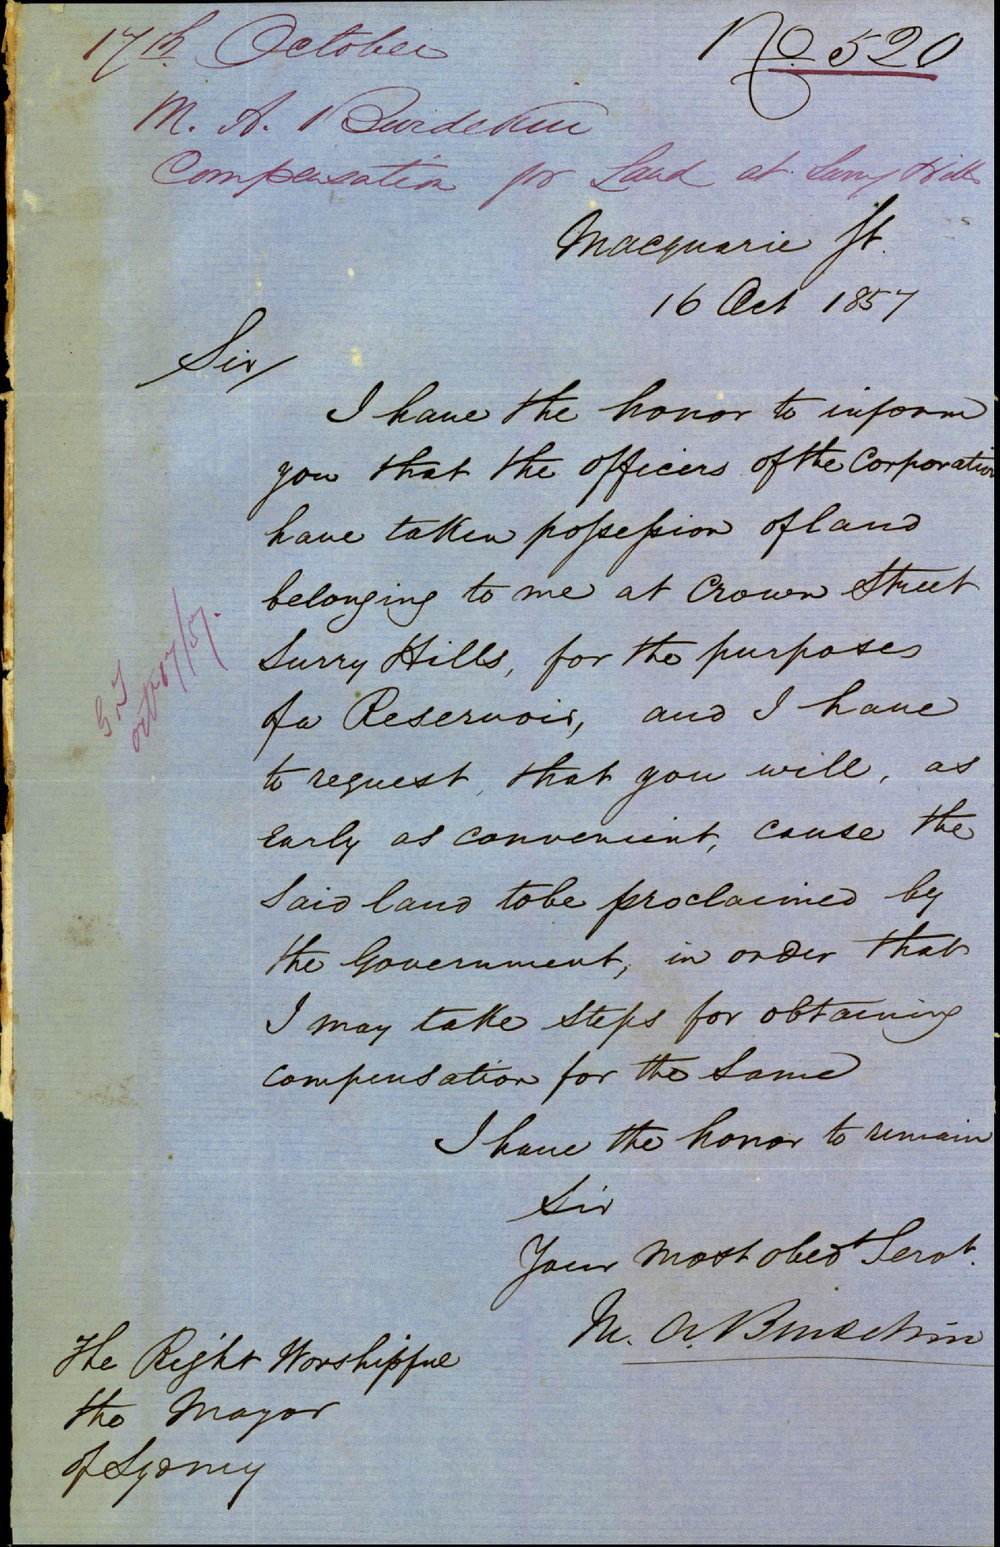 17th October
No 520
M. A. Burdekin
Compensation for Land at Surry Hills
Macquarie St.
16 Oct 1857
Sir/
I have the honor to inform
you that the officers of the Corporation
have taken possession of land
belonging to me at Crown Street
Surry Hills, for the purposes
of a Reservoir, and I have
to request, that you will, as
early as convenient, cause the
said land to be proclaimed by
the Government, in order that
I may take steps for obtaining
compensation for the same
I have the honor to remain
Sir
Your most obedt Servt.
M. A. Burdekin
The Right Worshipful
the Mayor
of Sydney
Oct 17/57.